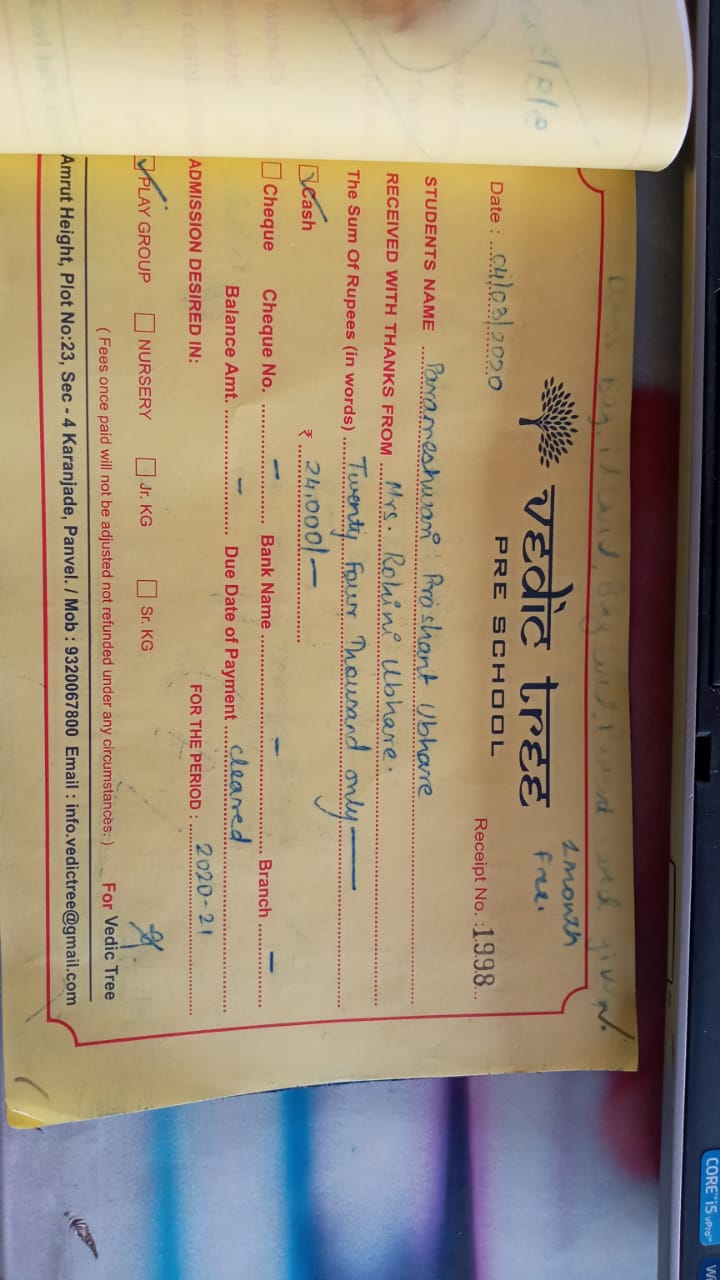 vedic tree
PRE SCHOOL
1 month
free.
Date : 04/03/2020
Receipt No. : 1998
STUDENTS NAME Parameshwari Prashant Ubhare
RECEIVED WITH THANKS FROM Mrs. Rohini Ubhare.
The Sum Of Rupees (in words) Twenty Four Thousand only
Cash ₹ 24,000/-
Cheque Cheque No. - Bank Name - Branch -
Balance Amt. - Due Date of Payment cleared
ADMISSION DESIRED IN: FOR THE PERIOD : 2020-21
PLAY GROUP NURSERY Jr. KG Sr. KG
( Fees once paid will not be adjusted not refunded under any circumstances. ) For Vedic Tree
Amrut Height, Plot No:23, Sec - 4 Karanjade, Panvel. / Mob : 9320067800 Email : info.vedictree@gmail.com
CORE i5 vPro